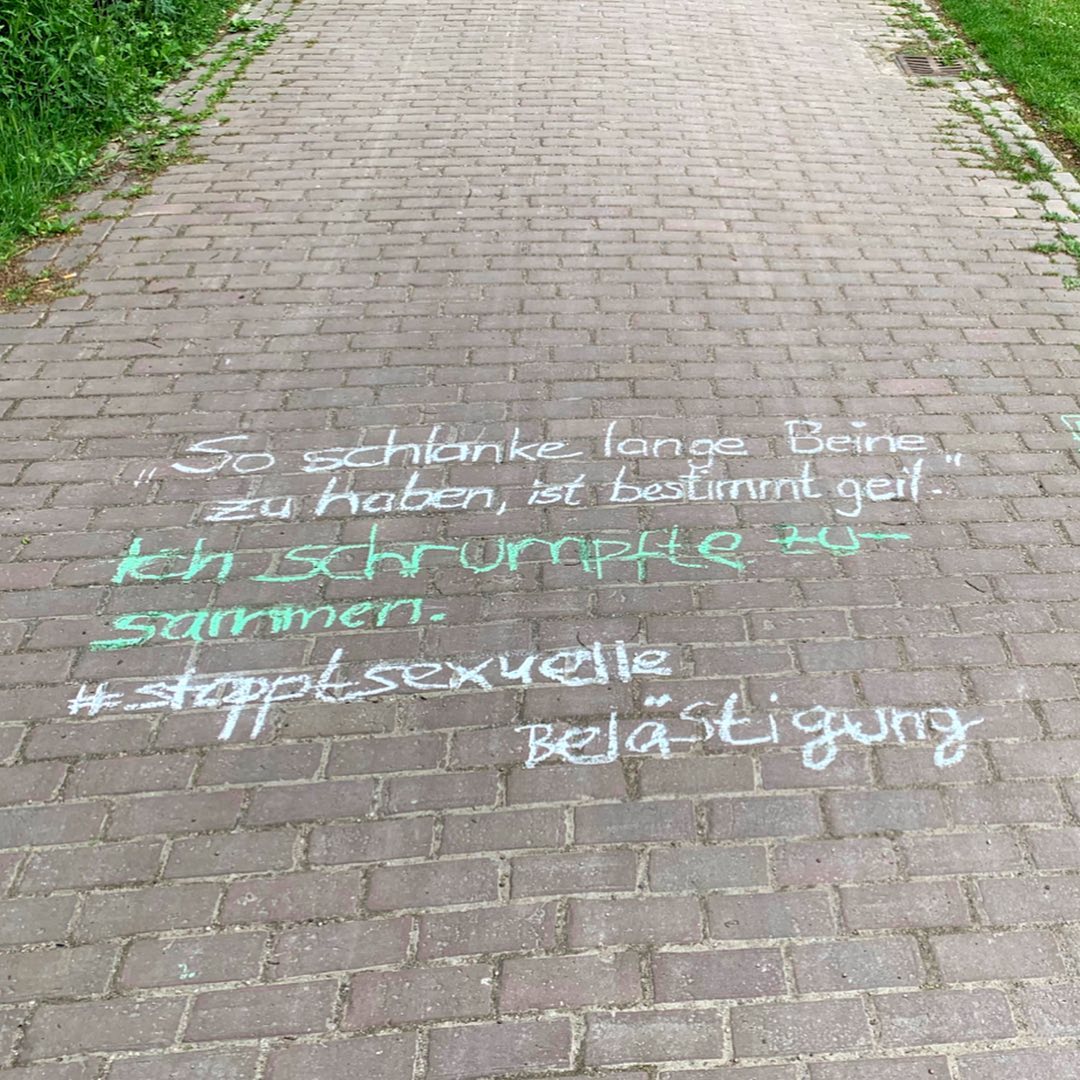 „So schlanke lange Beine
zu haben, ist bestimmt geil."
Ich schrumpfte zu-
sammen.
#stopptsexuelle
Belästigung